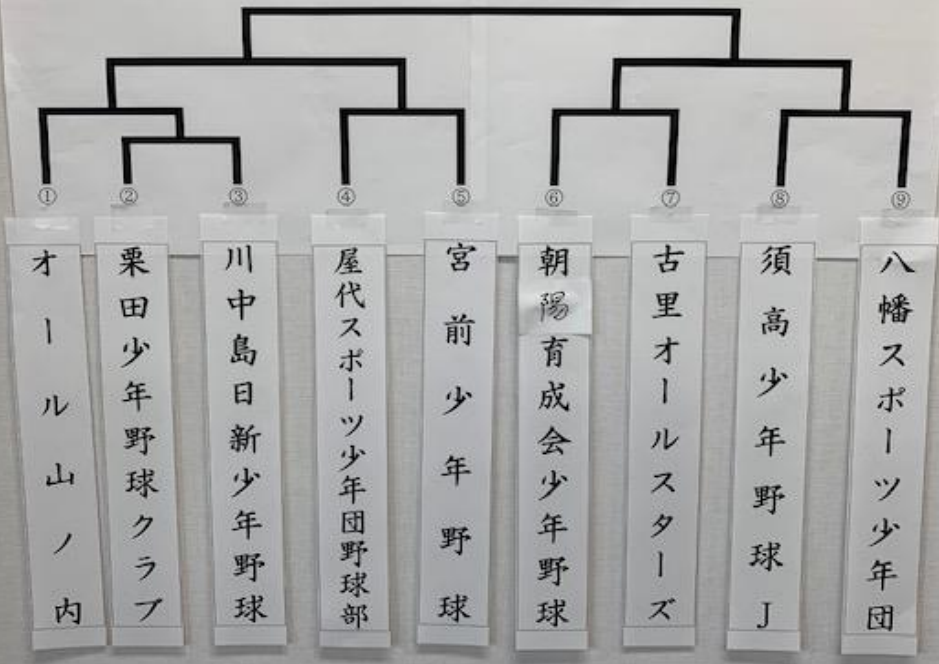 ① オール山ノ内
② 栗田少年野球クラブ
③ 川中島日新少年野球
④ 屋代スポーツ少年団野球部
⑤ 宮前少年野球
⑥ 朝陽育成会少年野球
⑦ 古里オールスターズ
⑧ 須高少年野球J
⑨ 八幡スポーツ少年団